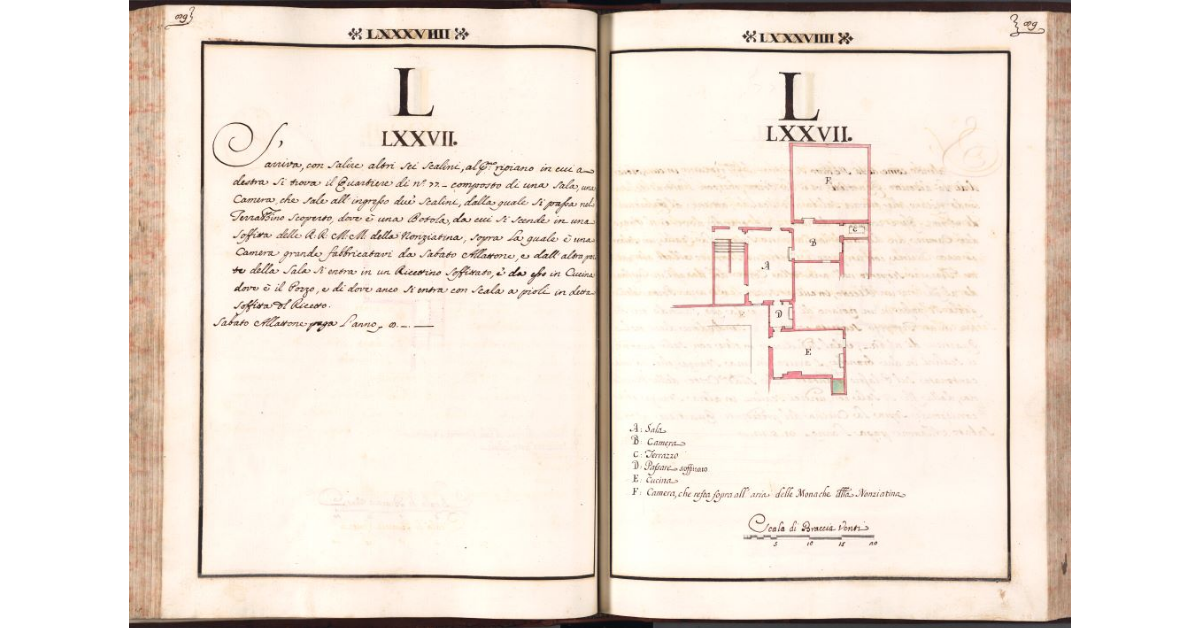 89
LXXXVIIII
L
LXXVII.
Si
arriva, con salire altri sei scalini, al ripiano in cui a
destra si trova il Quartiere di n.º 77 composto di una Sala, una
Camera, che sale all'ingresso due scalini, dalla quale si passa nel
Terrazzino scoperto, dove è una Botola, da cui si scende in una
soffitta delle R R M M della Nonziatina, sopra la quale è una
Camera grande fabbricatavi da Sabato Allattone, e dall'altra par
te della Sala si entra in un Ricettino soffittato, e da esso in Cucina
dove è il Pozzo, e di dove anco si entra con scala a pioli in detta
soffitta del Ricetto.
Sabato Allattone paga l'anno
89
LXXXVIIII
L
LXXVII.
F
C
B
A
D
E
A: Sala
B: Camera
C: Terrazzo
D: Passare soffittato
E: Cucina
F: Camera, che resta sopra all'aria delle Monache della Nonziatina
Scala di Braccia Venti
5 10 15 20